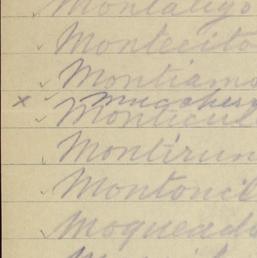 Montaligo
✓ Montecito
✓ Montiamo
✓
x ✓ Monticul
✓ Montirun
✓ Montoncil
✓ Moqueado